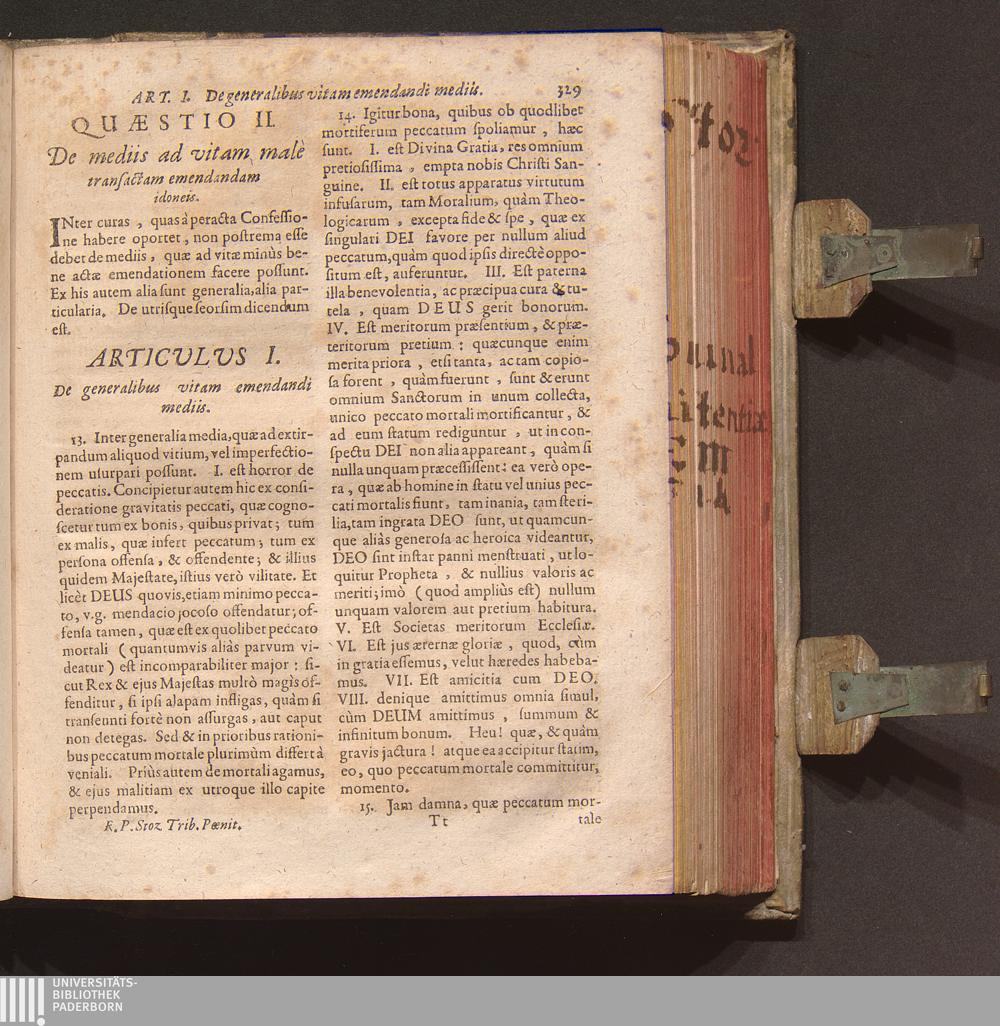 ART. I. De generalibus vitam emendandi mediis. 329
QUÆSTIO II.
De mediis ad vitam malè
transactam emendandam
idoneis.
INter curas, quas à peracta Confessio-
ne habere oportet, non postrema esse
debet de mediis, quæ ad vitæ minùs be-
ne actæ emendationem facere possunt.
Ex his autem alia sunt generalia, alia par-
ticularia. De utrisque seorsim dicendum
est.
ARTICULUS I.
De generalibus vitam emendandi
mediis.
13. Inter generalia media, quæ ad extir-
pandum aliquod vitium, vel imperfectio-
nem usurpari possunt. I. est horror de
peccatis. Concipietur autem hic ex consi-
deratione gravitatis peccati, quæ cogno-
scetur tum ex bonis, quibus privat; tum
ex malis, quæ infert peccatum; tum ex
persona offensa, & offendente; & illius
quidem Majestate, istius verò vilitate. Et
licèt DEUS quovis, etiam minimo pecca-
to, v.g. mendacio jocoso offendatur; of-
fensa tamen, quæ est ex quolibet peccato
mortali (quantumvis aliàs parvum vi-
deatur) est incomparabiliter major: si-
cut Rex & ejus Majestas multò magis of-
fenditur, si ipsi alapam infligas, quàm si
transeunti fortè non assurgas, aut caput
non detegas. Sed & in prioribus rationi-
bus peccatum mortale plurimùm differt à
veniali. Priùs autem de mortali agamus,
& ejus malitiam ex utroque illo capite
perpendamus.
R. P. Stoz Trib. Pœnit.
14. Igitur bona, quibus ob quodlibet
mortiferum peccatum spoliamur, hæc
sunt. I. est Divina Gratia, res omnium
pretiosissima, empta nobis Christi San-
guine. II. est totus apparatus virtutum
infusarum, tam Moralium, quàm Theo-
logicarum, excepta fide & spe, quæ ex
singulari DEI favore per nullum aliud
peccatum, quàm quod ipsis directè oppo-
situm est, auferuntur. III. Est paterna
illa benevolentia, ac præcipua cura & tu-
tela, quam DEUS gerit bonorum.
IV. Est meritorum præsentium, & præ-
teritorum pretium: quæcunque enim
merita priora, etsi tanta, ac tam copio-
sa forent, quàm fuerunt, sunt & erunt
omnium Sanctorum in unum collecta,
unico peccato mortali mortificantur, &
ad eum statum rediguntur, ut in con-
spectu DEI non alia appareant, quàm si
nulla unquam præcessissent: ea verò ope-
ra, quæ ab homine in statu vel unius pec-
cati mortalis fiunt, tam inania, tam steri-
lia, tam ingrata DEO sunt, ut quamcun-
que aliàs generosa ac heroica videantur,
DEO sint instar panni menstruati, ut lo-
quitur Propheta, & nullius valoris ac
meriti; imò (quod ampliùs est) nullum
unquam valorem aut pretium habitura.
V. Est Societas meritorum Ecclesiæ.
VI. Est jus æternæ gloriæ, quod, cùm
in gratia essemus, velut hæredes habeba-
mus. VII. Est amicitia cum DEO.
VIII. denique amittimus omnia simul,
cùm DEUM amittimus, summum &
infinitum bonum. Heu! quæ, & quàm
gravis jactura! atque ea accipitur statim,
eo, quo peccatum mortale committitur,
momento.
15. Jam damna, quæ peccatum mor-
Tt tale
Stoz
unal
itentiæ
UNIVERSITÄTS-
BIBLIOTHEK
PADERBORN